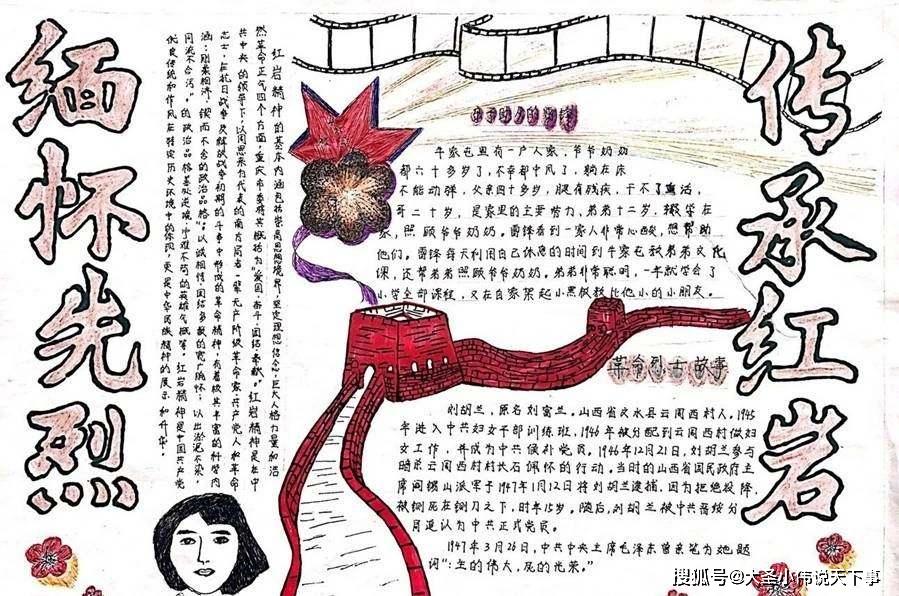 缅怀先烈
红岩精神的基本内涵包括崇高思想境界、坚定理想信念、巨大人格力量和浩
然革命正气四个方面,重庆市委将其概括为“爱国、奋斗、团结、奉献”。红岩精神是在中
共中央的领导下,以周恩来为代表的南方局老一辈无产阶级革命家、共产党人和革命
志士,在抗日战争及解放战争初期的斗争中形成的革命精神,有着极其丰富的科学内
涵:刚柔相济,锲而不舍的政治品格,以诚相待,团结多数的宽广胸怀;以出淤泥不染,
同流不合污”的政治品格
优良传统和作风在特定历史环境中的体现,更是中华民族精神的展示和升华。
牛家屯里有一户人家,爷爷奶奶
都六十多岁了,不幸都中风了,躺在床
不能动弹,父亲四十多岁,腿有残疾,干不了重活,
哥二十岁,是家里的主要劳力,弟弟十二岁,辍学在
家,照顾爷爷奶奶。雷锋看到一家人非常心酸,想帮助
他们。雷锋每天利用自己休息的时间到牛家屯教弟弟文化
课,还帮弟弟照顾爷爷奶奶,弟弟非常聪明,一年就学会了
小学全部课程,又在自家架起小黑板教比他小的小朋友。
革命烈士故事
刘胡兰,原名刘富兰。山西省文水县云周西村人。1945
年进入中共妇女干部训练班,1946年被分配到云周西村做妇
女工作,并成为中共候补党员。1946年12月21日,刘胡兰参与
暗杀云周西村村长石佩怀的行动。当时的山西省国民政府主
席阎锡山派军于1947年1月12日将刘胡兰逮捕,因为拒绝投降,
被铡死在铡刀之下,时年15岁。随后,刘胡兰被中共晋绥分
追认为中共正式党员。
1947年3月26日,中共中央主席毛泽东曾亲笔为她题
词:“生的伟大,死的光荣。”
传承红岩
搜狐号@大圣小伟说天下事